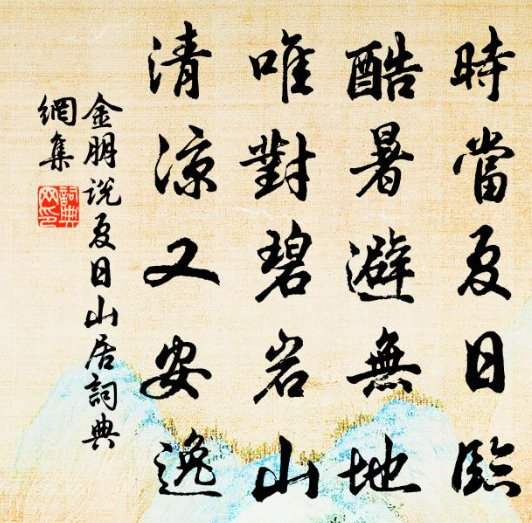 時當夏日臨
酷暑避無地
唯對碧岩山
清涼又安逸
金朋說夏日山居詞典
網集
詞典
网印